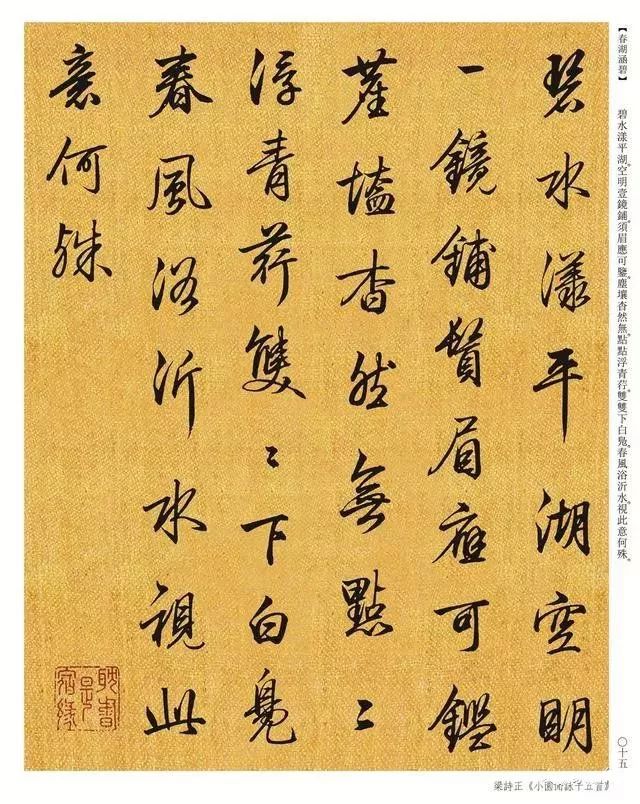 【春湖涵碧】 碧水漾平湖。空明壹鏡鋪。須眉應可鑒。塵壤杳然無。點點浮青荇。雙雙下白鳧。春風浴沂水。視此意何殊。
〇十五
碧水漾平湖空明
一鏡鋪鬚眉應可鑑
塵壒杳然無點〻
浮青荇雙〻下白鳧
春風浴沂水視此
意何殊
耽書是宿緣
梁詩正《小園閒詠十五首》